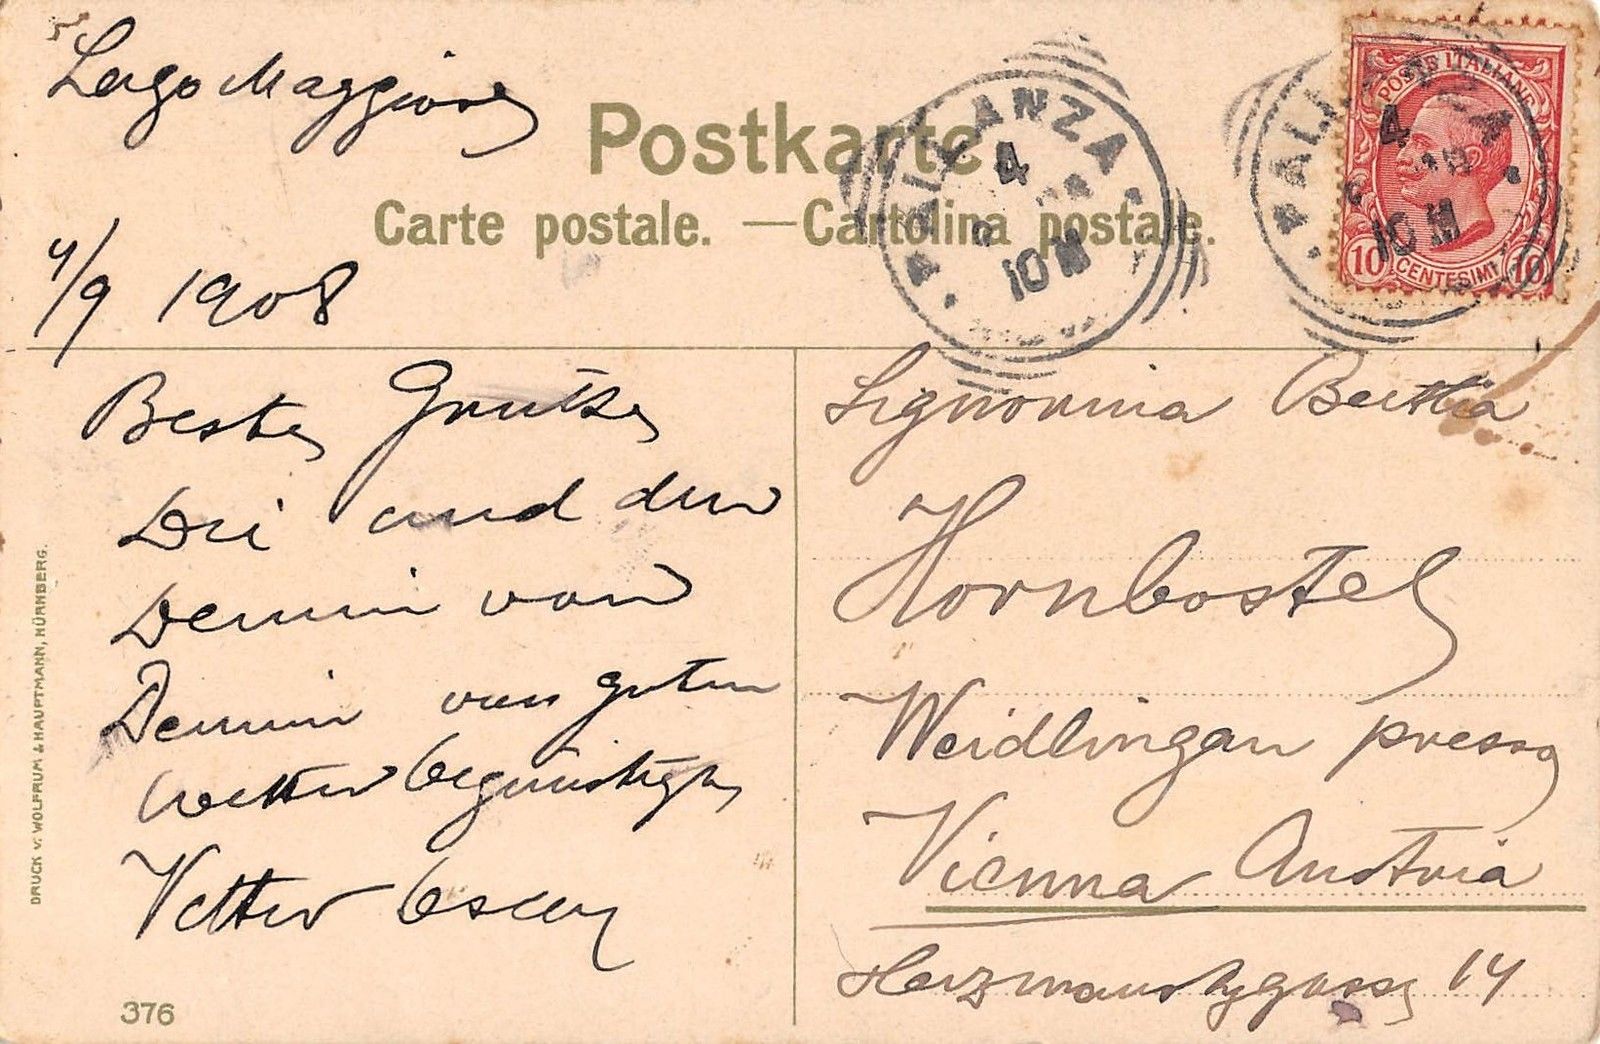 Lago Maggiore
4/9 1908
Postkarte
Carte postale. — Cartolina postale.
PALLANZA
4
10 M
PALLANZA
4
10 M
POSTE ITALIANE
10 CENTESIMI 10
Beste Grüße
Dir und den
Deinen von
Deinem von guten
Wetter begünstigten
Vetter Oscar
Signorina Bertha
Hornbostel
Weidlingau presso
Vienna Austria
Herzmanskygasse 14
DRUCK v. WOLFRUM & HAUPTMANN, NÜRNBERG.
376